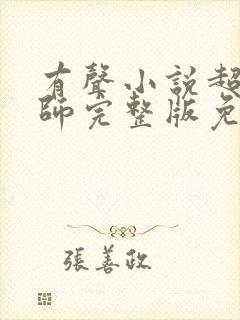 有聲小說超
師完整版免
張善政